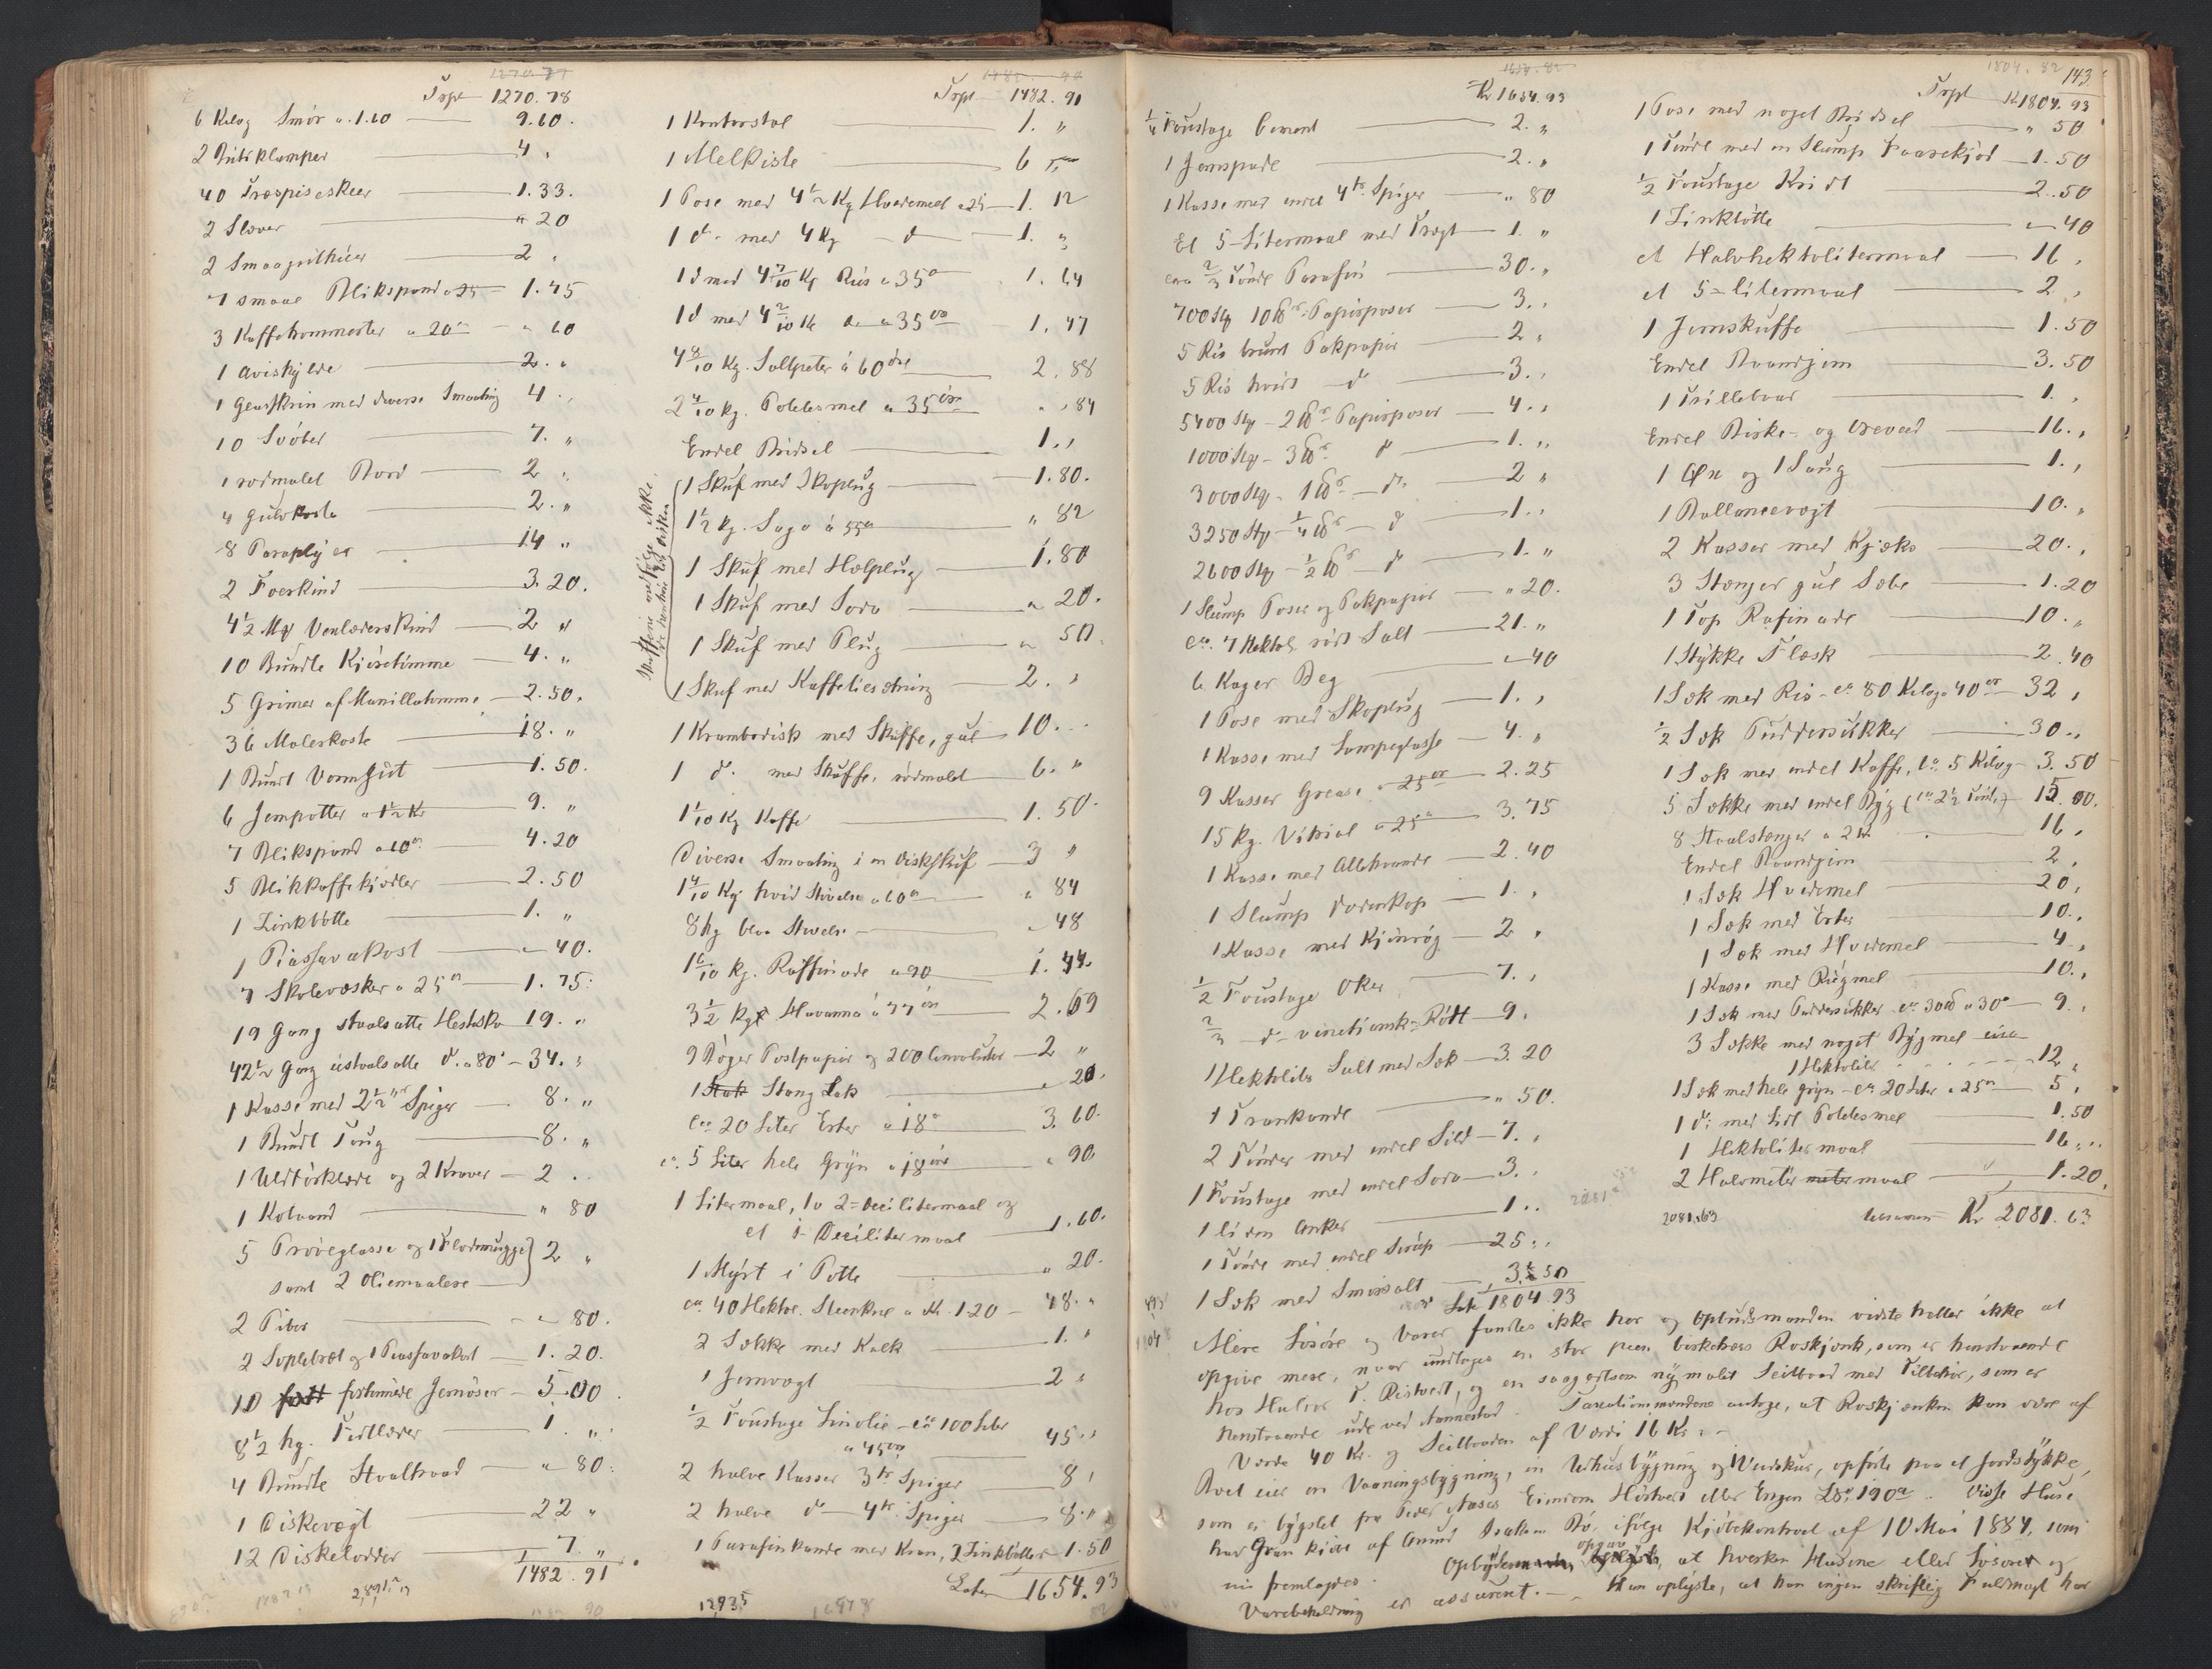 1270.78
Trpt 1270.78
6 Kilog Smør a 1.60 9.60.
2 Butiklamper 4 "
40 Træspiseskeer 1.33.
2 Slæver " 20
2 2 "
7 smaae Blikspand a 25 1.75
3 Kaffetrommester a 20 " 60
1 Avishylde 2. "
1 Glasskrin med diverse Smaating 4. "
10 Svøber 7. "
1 rødmalet Bord 2 "
4 Gulvkoste 2. "
8 Paraplyer 14 "
2 Foerskind 3.20.
4 1/2 Vandlæderskind 2 "
10 Bundte Kjøretømme 4. "
5 Grimer af Manillatomme 2.50.
36 Malerkoste 18. "
1 Bundt Vomgut 1.50.
6 Jernpotter a 1 1/2 Kr 9. "
7 Blikspand a 60 4.20
5 Blikkaffekjedler 2.50
1 Zinkbøtte 1. "
1 Piassavakost " 40.
7 Skolevæsker a 25 1.75.
19 Gang staalsatte Hestesko 19. "
42 1/2 Gang ustaalsatte do a 80 34. "
1 Kasse med 2 1/2" Spiger 8. "
1 Bundt Toug 8. "
1 Uldtørklæde og 2 Kraver 2 "
1 Kotaand " 80
5 Prøveglasse og 1 Flødemugge } 2 "
samt 2 Oliemaalere
2 Piber " 80.
2 Soplebræt og 1 Piassavakost 1.20.
10 fortinnede Jernøser 5.00.
8 1/2 hg. Fedtlæder 1 "
4 Bundte Staaltraad " 80.
1 Diskevægt 22 "
12 Diskelodder 7. "
1482.91
Trpt 1482.91
1 Kontorstol 1. "
1 Melkiste 6 "
1 Pose med 4 1/2 Kg Hvedemeel a 25 1.12
1 do med 4 Kg do 1. "
1 d med 4 7/10 Kg Ris a 35 1.64
1 d med 4 2/10 Kg do a 35 1.47
4 8/10 Kg. Saltpeter á 60 øre 2.88
2 4/10 kg. Potetesmel a 35 øre " 84
Endel Bidsel 1. "
1 Skuf med Skoplug 1.80.
1 1/2 kg. Sago á 55 " 82
1 Skuf med Hælplug 1.80
1 Skuf med Soda " 20.
1 Skuf med Plug " 50.
1 Skuf med Kaffetilsætning 2. "
1 Krambodisk med Skuffe, gul 10. "
1 do. med Skuffe, rødmalet 6. "
1 1/10 Kg Kaffe 1.50.
Diverse Smaating i en Diskskuf 3 "
1 4/10 Kg hvid Stivelse a 60 " 84
8 hg blaa Stivelse " 48
1 6/10 kg. Raffinade a 90 1.44
3 1/2 kg Havanna á 77 øre 2.69
9 Bøger Postpapir og 200 Convolutter 2 "
1 Stang Lak " 20.
Ca 20 Liter Erter a 18 3.60.
ca. 5 Liter hele Gryn a 18 øre " 90
1 Litermaal, 1 2-Decilitermaal og
et 1-Decilitermaal 1.60.
1 Myst i Potte " 20.
ca 40 Hektol. Steenkul a Kr. 1.20 48. "
2 Sække med Kalk 1. "
1 Jernvægt 2 "
1/2 Foustage Linolie - ca 100 Liter
a 45 øre 45 "
2 halve Kasser 3" Spiger 8 "
2 halve do 4" Spiger 8. "
1 Parafinkande med Kran, 2 Zinkbøtter 1.50
Lates 1654.93
Kr 1654.93
1/4 Foustage Cement 2. "
1 Jernspade 2. "
1 Kasse med endel 4" Spiger " 80
Et 5-Litermaal med Tragt 1. "
cara 2/3 Tønde Parafin 30. "
700 Stp 10 ℔s Papirposer 3. "
5 Ris brunt Pakpapir 2 "
5 Ris hvidt do 3. "
5400 Stp - 2 ℔s Papirposer 4. "
1000 Stp - 3 ℔s d 1. "
3000 Stp - 1 ℔s do 2 "
3250 Stp - 1/4 ℔s d 1. "
2600 Stp - 1/2 ℔s d 1. "
1 Slump Poser og Pakpapir " 20.
ca. 7 Hektol. rødt Salt 21. "
6 Kager Beg " 40
1 Pose med Skoplug 1. "
1 Kasse med Lampeglasse 4. "
9 Kasser Grease a 25 øre 2.25
15 kg. Vitriol a 25 3.75
1 Kasse med Allehaande 2.40
1 Slump 1. "
1 Kasse med Kjønrøg 2 "
1/2 Foustage Oker 7. "
2/3 do venetiansk Rødt 9. "
1 Hektoliter Salt med Sæk 3.20
1 Trankande " 50.
2 Tønder med endel Sild 7. "
1 Foustage med endel Soda 3. "
1 liden Anker 1. "
1 Tønde med endel Sirup 25. "
1 Sæk med Smørsalt 3.50
Lat 1804.93
143
Trpt Kr 1804.93
1 Pose med noget Bidsel " 50
1 Tønde med en Slump Faarekjød 1.50
1/2 Foustage Kridt 2.50
1 Zinkbøtte " 40
et Halvhektolitermaal 16 "
et 5-litermaal 2 "
1 Jernskuffe 1.50
Endel Baandjern 3.50
1 Trillebaar 1. "
Endel Birke- og Oreved 16. "
1 Øx og 1 Saug 1. "
1 Ballancevægt 10. "
2 Kasser med Kjæks 20. "
3 Stænger gul Sæbe 1.20
1 Top Rafinade 10. "
1 Stykke Flæsk 2.40
1 Sæk med Ris - ca 80 Kilog a 40 øre 32 "
1/2 Sæk Puddersukker 30. "
1 Sæk med endel Kaffe, ca. 5 Kilog 3.50
5 Sække med endel Byg (ca 2 1/2 Tønde) 15.00.
8 Staalstænger a 2 Kr. 16 "
Endel Baandjern 2 "
1 Sæk Hvedemel 20 "
1 Sæk med Erter 10. "
1 Sæk med Hvedemel 4 "
1 Kasse med Rugmel 10. "
1 Sæk med Puddersukker ca 30 ℔ a 30 9. "
3 Sække med noget Bygmel circa
1 Hektoliter 12 "
1 Sæk med hele gryn - ca 20 Liter a 25 5 "
1 do: med lidt Potetesmel 1.50
1 Hektolitermaal 16 "
2 Halvmeter maal 1.20.
2081.63 tilsammen Kr 2081.63
Mere Løsøre og Varer fandtes ikke her og Opbudsmanden vidste heller ikke at
opgive mere, naar undtages en stor Roskjænk, som er henstaaende
hos Halvor T. Ristvedt, og en saagodtsom nymalet Seilbaad med Tilbehør, som er
henstaaende ude ved Taxationsmændene antoge, at Roskjænken kan være af
Værdi 40 Kr. og Seilbaaden af Værdi 16 Kr. -
Boet eier en Vaaningsbygning, en Uthusbygning og Vedskur, opførte paa et Jordstykke,
som er bygslet fra Peder Aases Eiendom eller Engen Lbnr 190a. Disse Huse
har Gran kjøbt af Amund Isaksen Bø, ifølge Kjøbekontrakt af 10 Mai 1884, som
nu fremlagdes. Opbyderen opgav, at hverken Husene eller Løsøret og
Varebeholdning er assureret. - Han oplyste, at han ingen skriftlig Fuldmagt har